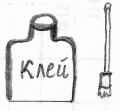 Клей